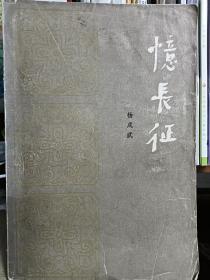 憶長征
杨成武